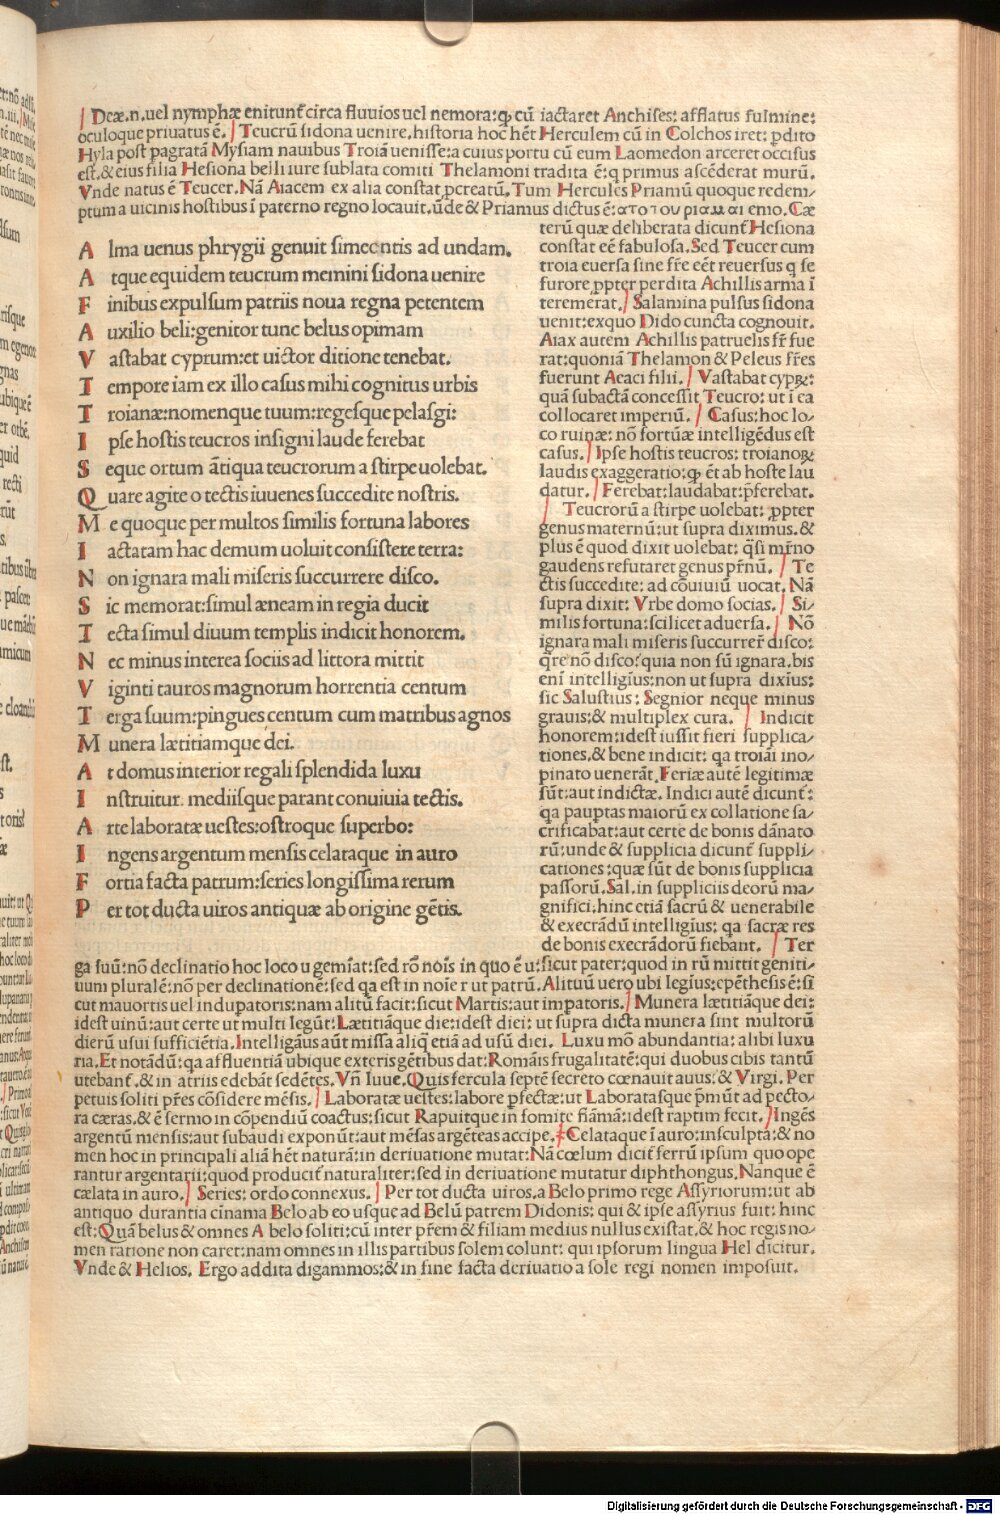 Deæ.n.uel nymphæ enitunt̃ circa fluuios uel nemora:ꝙ cũ iactaret Anchises: afflatus fulmine:
oculoque priuatus ẽ. Teucrũ sidona uenire, historia hoc hẽt Herculem cũ in Colchos iret: ꝑdito
Hyla post pagratã Mysiam nauibus Troiã uenisse:a cuius portu cũ eum Laomedon arceret occisus
est.& eius filia Hesiona belli iure sublata comiti Thelamoni tradita ẽ:q primus ascẽderat murũ.
Vnde natus ẽ Teucer. Nã Aiacem ex alia constat ꝓcreatũ. Tum Hercules Priamũ quoque redem⸗
ptum a uicinis hostibus ĩ paterno regno locauit.ũde & Priamus dictus ẽ: απο του πριαμαι emo. Cæ
A lma uenus phrygii genuit simeentis ad undam.
A tque equidem teucrum memini sidona uenire
F inibus expulsum patriis noua regna petentem
A uxilio beli:genitor tunc belus opimam
V astabat cyprum:et uictor ditione tenebat.
T empore iam ex illo casus mihi cognitus urbis
T roianæ:nomenque tuum:regesque pelasgi:
I pse hostis teucros insigni laude ferebat
S eque ortum ãtiqua teucrorum a stirpe uolebat.
Q uare agite o tectis iuuenes succedite nostris.
M e quoque per multos similis fortuna labores
I actatam hac demum uoluit consistere terra:
N on ignara mali miseris succurrere disco.
S ic memorat:simul æneam in regia ducit
T ecta simul diuum templis indicit honorem.
N ec minus interea sociis ad littora mittit
V iginti tauros magnorum horrentia centum
T erga suum:pingues centum cum matribus agnos
M unera lætitiamque dei.
A t domus interior regali splendida luxu
I nstruitur. mediisque parant conuiuia tectis.
A rte laboratæ uestes:ostroque superbo:
I ngens argentum mensis celataque in auro
F ortia facta patrum:series longissima rerum
P er tot ducta uiros antiquæ ab origine gẽtis.
terũ quæ deliberata dicunt̃ Hesiona
constat eẽ fabulosa. Sed Teucer cum
troia euersa sine fr̃e eẽt reuersus q se
furore ꝓpter perdita Achillis arma ĩ
teremerat. Salamina pulsus sidona
uenit:exquo Dido cuncta cognouit.
Aiax autem Achillis patruelis fr̃ fue
rat:quoniã Thelamon & Peleus fr̃es
fuerunt Aeaci filii. Vastabat cypꝝ:
quã subactã concessit Teucro: ut ĩ ea
collocaret imperiũ. Casus: hoc lo⸗
co ruinæ: nõ fortũæ intelligẽdus est
casus. Ipse hostis teucros: troianoꝝ
laudis exaggeratio:ꝙ ẽt ab hoste lau
datur. Ferebat:laudabat:p̃ferebat.
Teucrorũ a stirpe uolebat: ꝓpter
genus maternũ:ut supra diximus.&
plus ẽ quod dixit uolebat: q̃si mr̃no
gaudens refutaret genus pr̃nũ. Te
ctis succedite: ad cõuiuiũ uocat. Nã
supra dixit: Vrbe domo socias. Si⸗
milis fortuna:scilicet aduersa. Nõ
ignara mali miseris succurrer̃ disco:
q̃re nõ disco:quia non sũ ignara.bis
eni intelligius:non ut supra dixius:
sic Salustius: Segnior neque minus
grauis:& multiplex cura. Indicit
honorem:idest iussit fieri supplica⸗
tiones.& bene indicit: qa troiai ino⸗
pinato uenerãt. Feriæ autẽ legitimæ
sũt:aut indictæ. Indici autẽ dicunt̃:
qa pauptas maiorũ ex collatione sa⸗
crificabat:aut certe de bonis dãnato
rũ:unde & supplicia dicunt̃ suppli⸗
cationes:quæ sũt de bonis supplicia
passorũ. Sal. in suppliciis deorũ ma⸗
gnifici.hinc etiã sacrũ & uenerabile
& execrãdũ intelligius: qa sacræ res
de bonis execrãdorũ fiebant. Ter
ga suũ:nõ declinatio hoc loco u gemĩat:sed rõ nois in quo ẽ u:sicut pater:quod in rũ mittit geniti⸗
uum pluralẽ:nõ per declinationẽ:sed qa est in noie r ut patrũ. Alituũ uero ubi legius:epẽthesis ẽ:si
cut mauortis uel indupatoris:nam alitũ facit:sicut Martis:aut impatoris. Munera lætitiãque dei:
idest uinũ:aut certe ut multi legũt:Lætitiãque die:idest diei: ut supra dicta munera sint multorũ
dierũ usui sufficiẽtia. Intelligãus aũt missa aliq̃ etiã ad usũ diei. Luxu mõ abundantia: alibi luxu
ria. Et notãdũ:qa affluentiã ubique exteris gẽtibus dat: Romãis frugalitatẽ:qui duobus cibis tantũ
utebant̃.& in atriis edebãt sedẽtes. Vñ Iuue. Quis fercula septẽ secreto cœnauit auus:& Virgi. Per
petuis soliti pr̃es cõsidere mẽsis. Laboratæ uestes:labore ꝑfectæ:ut Laboratasque p̃mũt ad pecto⸗
ra cæras.& ẽ sermo in cõpendiũ coactus:sicut Rapuitque in fomite fiãmã:idest raptim fecit. Ingẽs
argentũ mensis:aut subaudi exponũt:aut mẽsas argẽteas accipe. Celataque ĩ auro:insculpta:& no
men hoc in principali aliã hẽt naturã:in deriuatione mutat: Nã cœlum dicit̃ ferrũ ipsum quo ope
rantur argentarii:quod producit̃ naturaliter:sed in deriuatione mutatur diphthongus. Nanque ẽ
cælata in auro. Series: ordo connexus. Per tot ducta uiros.a Belo primo rege Assyriorum:ut ab
antiquo durantia cĩnama Belo ab eo usque ad Belũ patrem Didonis: qui & ipse assyrius fuit: hinc
est:Quã belus & omnes A belo soliti:cũ inter pr̃em & filiam medius nullus existat.& hoc regis no⸗
men ratione non caret:nam omnes in illis partibus solem colunt: qui ipsorum lingua Hel dicitur.
Vnde & Helios. Ergo addita digammos:& in fine facta deriuatio a sole regi nomen imposuit.
Digitalisierung gefördert durch die Deutsche Forschungsgemeinschaft - DFG